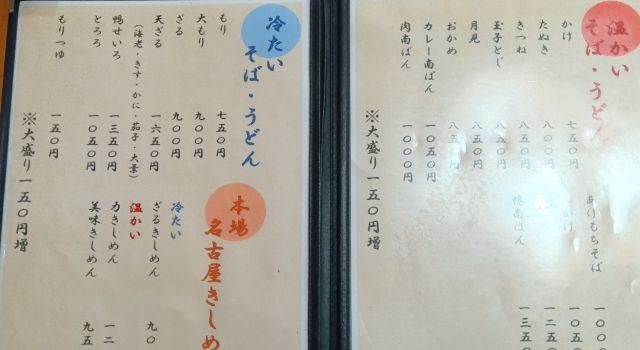 温かい
そば・うどん
かけ 七五〇円
たぬき
きつね
玉子とじ 八五〇円
月見 八五〇円
おかめ 八五〇円
カレー南ばん 一〇五〇円
肉南ばん 一〇〇〇円
※大盛り一五〇円増
一〇〇〇
一〇五〇
一二五〇
鴨南ばん 一三五〇
冷たい
そば・うどん
もり 七五〇円
大もり 九〇〇円
ざる 九〇〇円
天ざる 一六五〇円
(海老・きす・かに・茄子・大葉)
鴨せいろ 一三五〇円
とろろ 一〇五〇円
もりつゆ 一五〇円
※大盛り一五〇円増
本場
名古屋きしめ
冷たい
ざるきしめん 九〇
温かい
力きしめん 一二
美味きしめん 九五